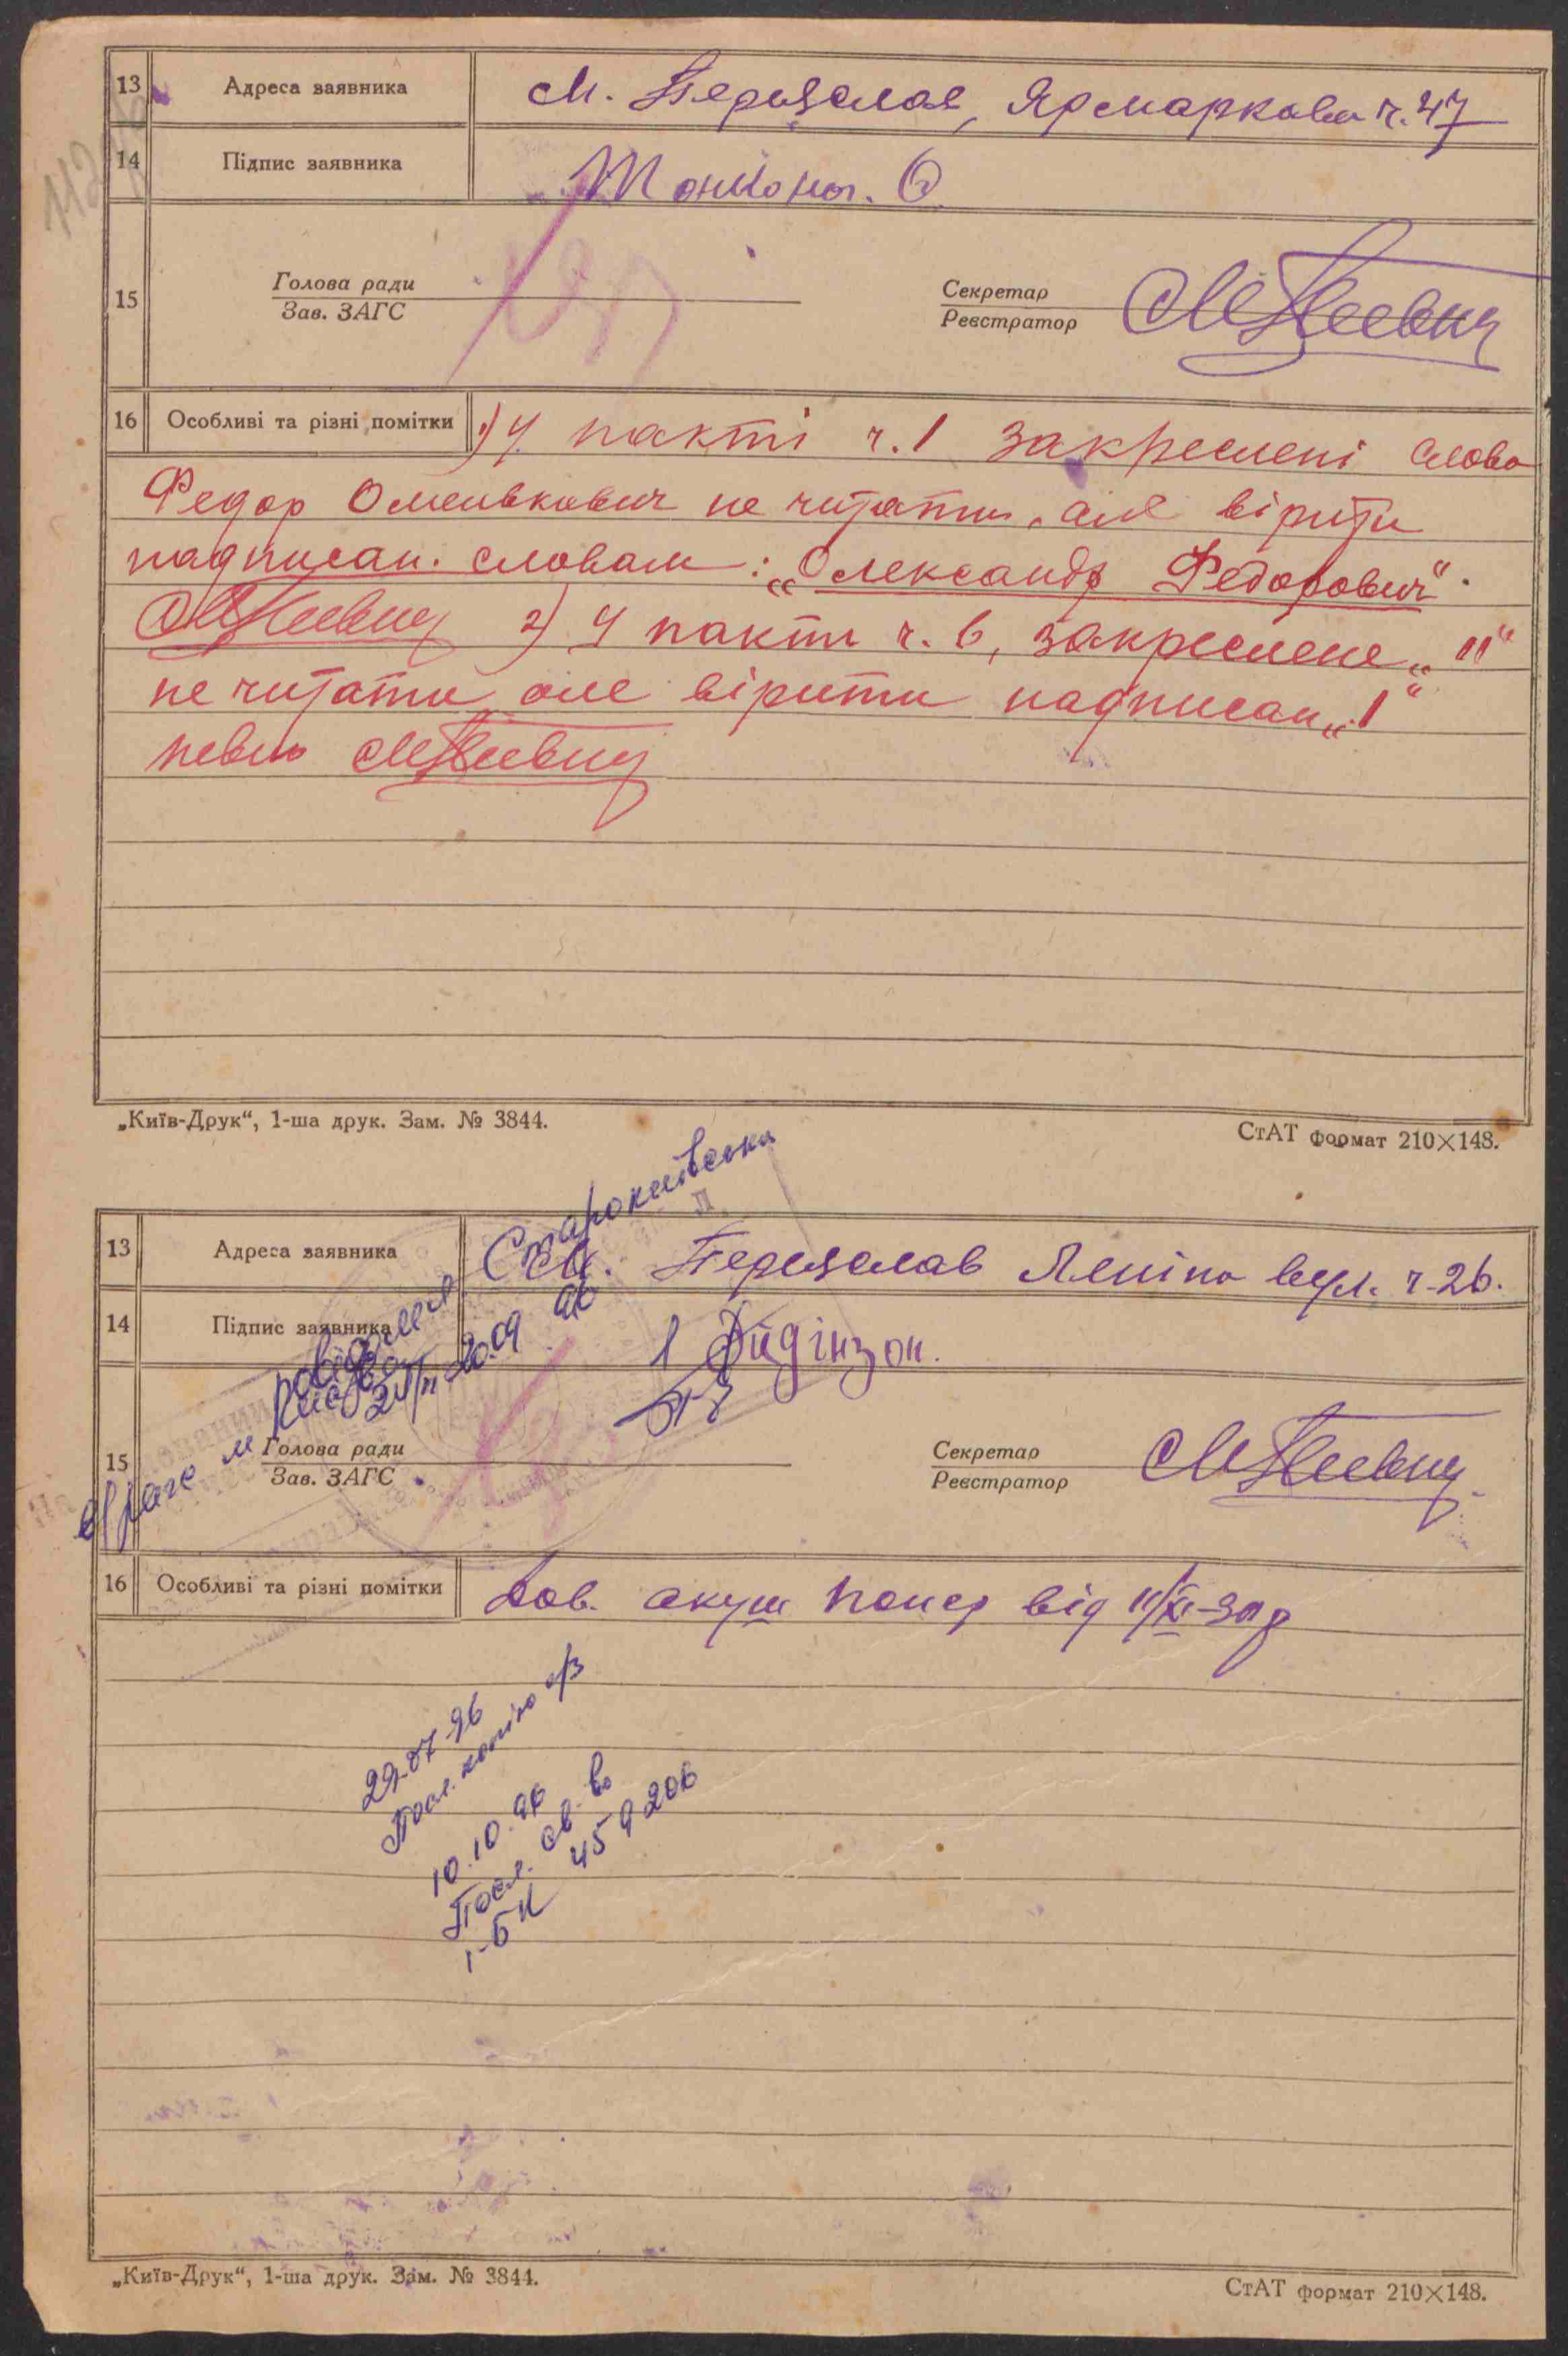 13 Адреса заявника м. Переяслав, Ярмаркова ч. 47
14 Підпис заявника О.
15 Голова ради
Зав. ЗАГС
Секретар
Реєстратор
16 Особливі та різні помітки 1) У пакті ч. 1 закреслені слова
Федор не читати, але вірити
надписан. словам: „Олександр Федорович“.
2) У пакти ч. 6, закреслене „11“
не читати але вірити надписан „1“
певно
„Київ-Друк“, 1-ша друк. Зам. № 3844.
СтАТ формат 210×148.
Старокиївська
13 Адреса заявника м. Переяслав Леніна вул. ч. 26.
14 Підпис заявника Дидінзон.
20.09 96
15 Голова ради
Зав. ЗАГС
Секретар
Реєстратор
16 Особливі та різні помітки Дов. акуш від 11/XI-
29.07-96
Посл. копію
10.10.96
Посл. св-во
1-БК 459206
„Київ-Друк“, 1-ша друк. Зам. № 3844.
СтАТ формат 210×148.